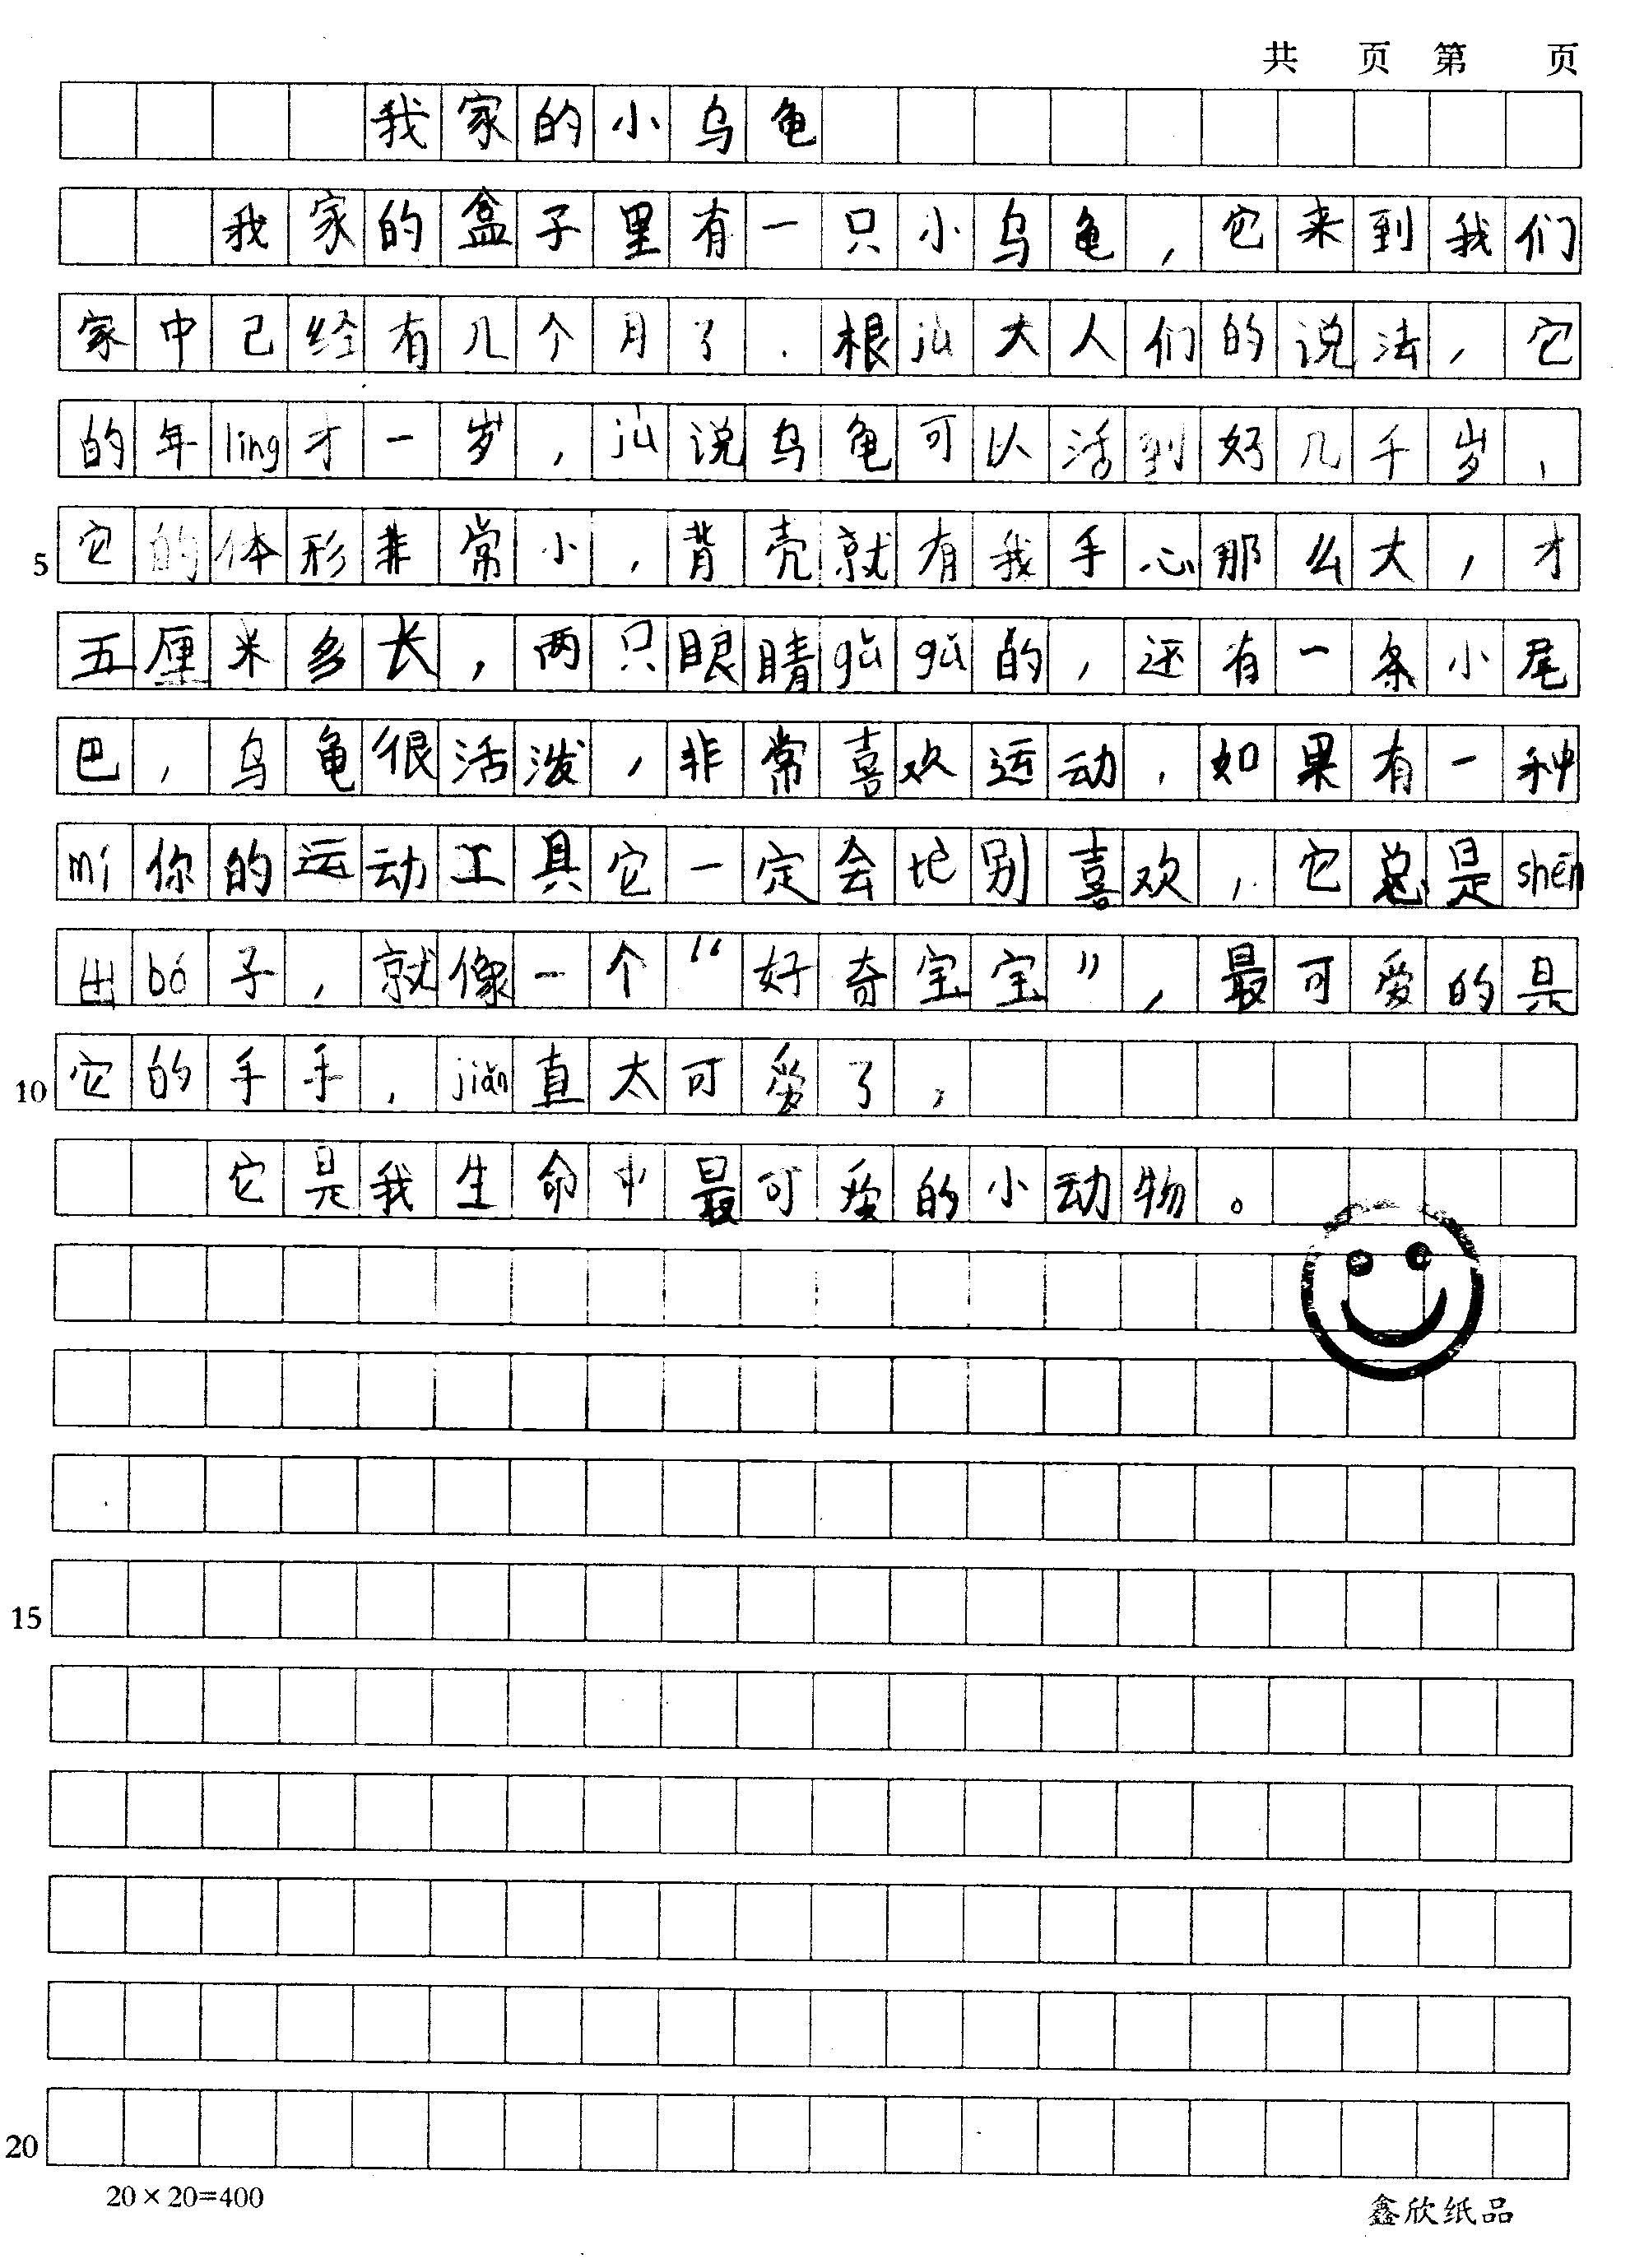 共 页 第 页
我家的小乌龟
我家的盒子里有一只小乌龟,它来到我们
家中已经有几个月了.根jù大人们的说法,它
的年líng才一岁,jù说乌龟可以活到好几千岁,
5 它的体形非常小,背壳就有我手心那么大,才
五厘米多长,两只眼睛gǔgǔ的,还有一条小尾
巴,乌龟很活泼,非常喜欢运动,如果有一种
mí你的运动工具它一定会特别喜欢,它总是shēn
出bó子,就像一个“好奇宝宝”,最可爱的是
10 它的手手,jiǎn直太可爱了,
它是我生命中最可爱的小动物。
15
20
20×20=400 鑫欣纸品